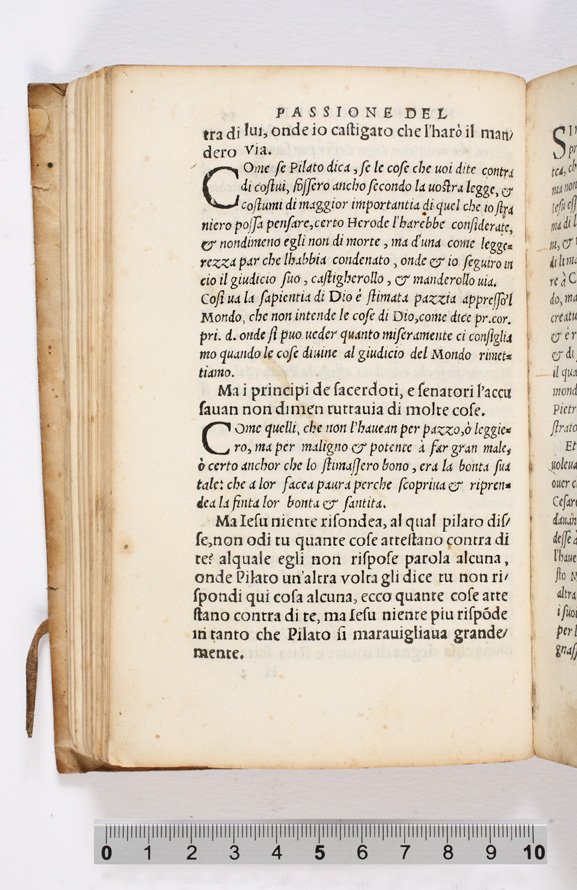 PASSIONE DEL
tra di lui, onde io castigato che l'harò il man/
dero via.
COme se Pilato dica, se le cose che uoi dite contra
di costui, fossero ancho secondo la uostra legge, &
costumi di maggior importantia di quel che io stra
niero possa pensare, certo Herode l'harebbe considerate,
& nondimeno egli non di morte, ma d'una come legge=
rezza par che lhabbia condenato, onde & io seguiro in
cio il giudicio suo, castigherollo, & manderollo uia.
Cosi ua la sapientia di Dio è stimata pazzia appresso'l
Mondo, che non intende le cose di Dio, come dice pr. cor.
pri. d. onde si puo ueder quanto miseramente ci consiglia
mo quando le cose diuine al giudicio del Mondo rimet=
tiamo.
Ma i principi de sacerdoti, e senatori l'accu
sauan non dimen tuttauia di molte cose.
COme quelli, che non l'hauean per pazzo, ò leggie=
ro, ma per maligno & potente à far gran male,
ò certo anchor che lo stimassero bono, era la bonta sua
tale: che a lor facea paura perche scopriua & ripren=
dea la finta lor bonta & santita.
Ma Iesu niente risondea, al qual pilato dis/
se, non odi tu quante cose attestano contra di
te? alquale egli non rispose parola alcuna,
onde Pilato un'altra volta gli dice tu non ri/
spondi qui cosa alcuna, ecco quante cose atte
stano contra di te, ma Iesu niente piu rispōde
in tanto che Pilato si marauigliaua grande/
mente.
0 1 2 3 4 5 6 7 8 9 10